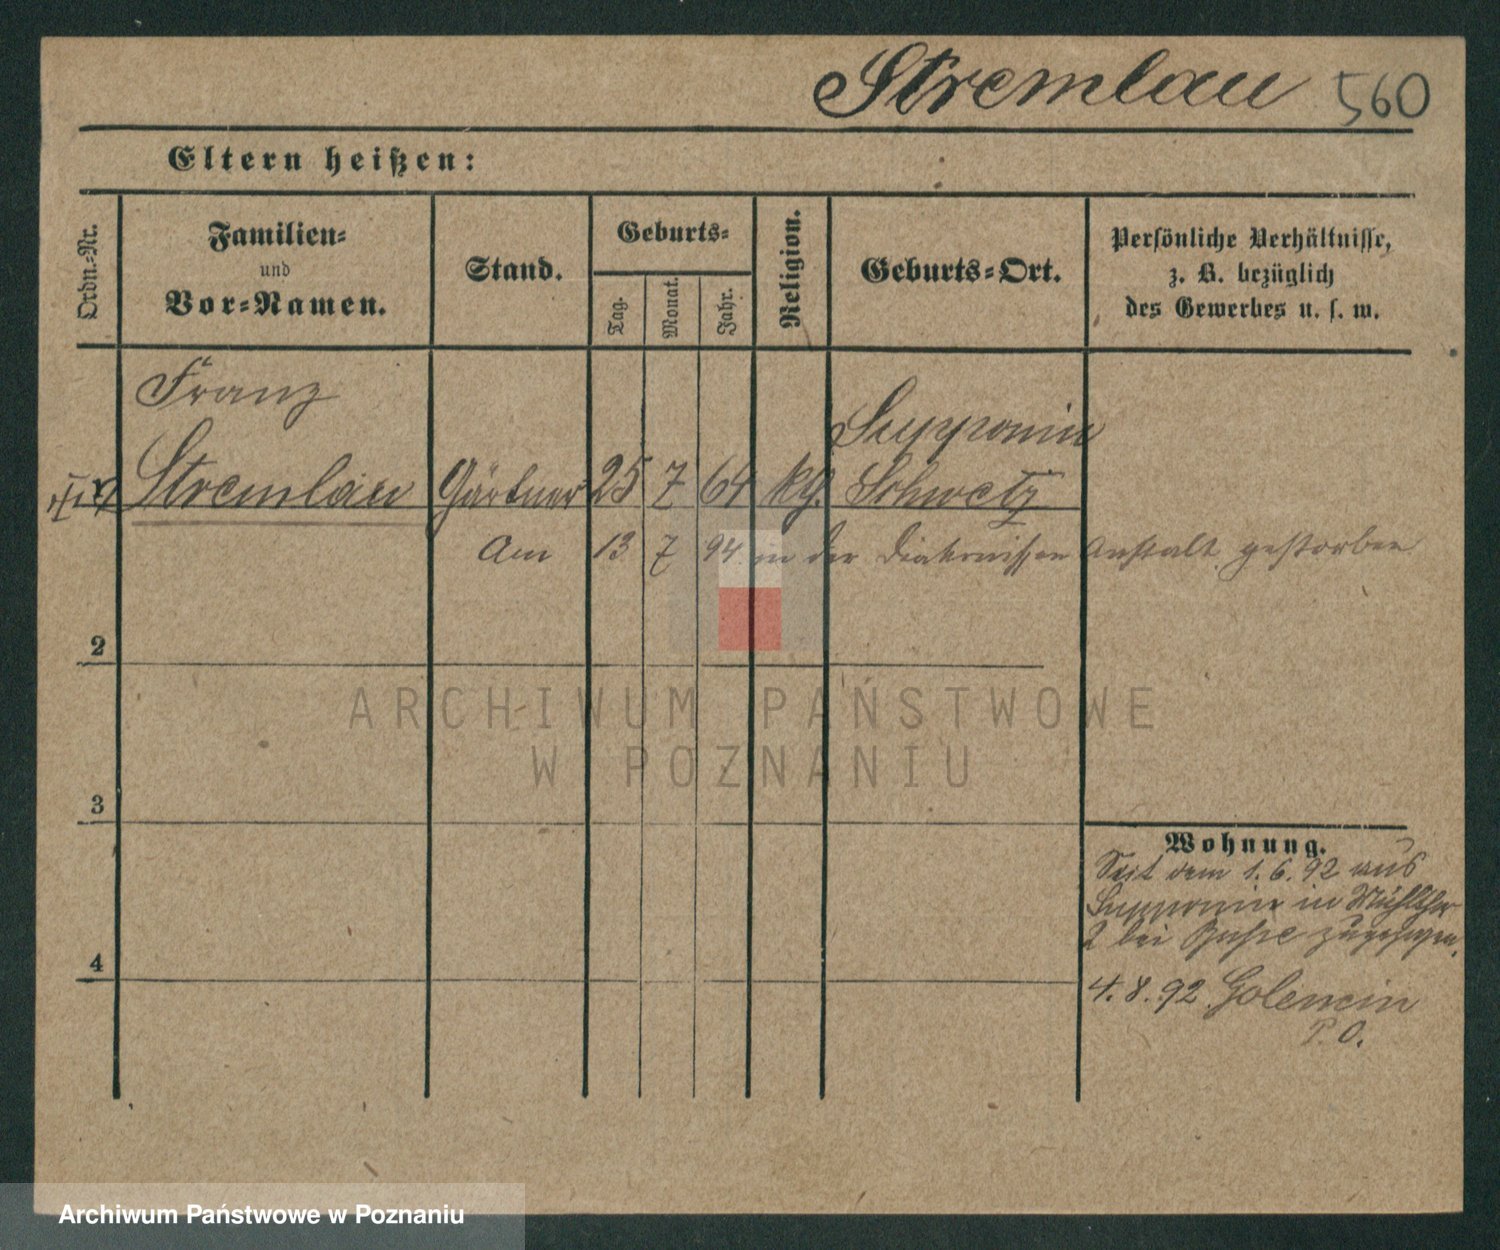 Stremlau 560
Eltern heißen:
Ordn.-Nr.
Familien-
und
Vor-Namen.
Stand.
Geburts-
Tag.
Monat.
Jahr.
Religion.
Geburts-Ort.
Persönliche Verhältnisse,
z. B. bezüglich
des Gewerbes u. s. w.
Franz
Stremlau Gärtner 25 7 64 kg.
Supponin
Schwetz
Am 13 7 94 in der Diakonissen Anstalt gestorben
2
3
4
Wohnung.
Seit dem 1.6.92 aus
Supponin in
2 bei zugezogen.
4.8.92 Golencin
P.O.
ARCHIWUM PAŃSTWOWE
W POZNANIU
Archiwum Państwowe w Poznaniu